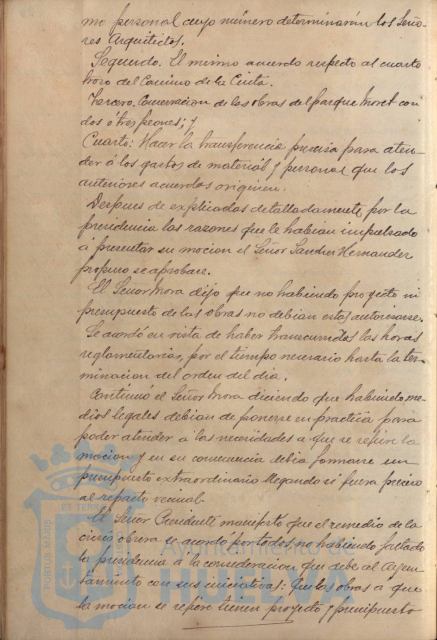 mo personal cuyo número determinarán los Seño-
res Arquitectos.
Segundo. El mismo acuerdo respecto al cuarto
trozo del Camino de la Cinta.
Tercero. Conservacion de las obras del parque Moret con
dos ó tres peones; y
Cuarto: Hacer la transferencia precisa para aten-
der á los gastos de material y personal que los
anteriores acuerdos originen.
Despues de explicadas detalladamente por la
presidencia las razones que le habian impulsado
á presentar su mocion el Señor Sanchez Hernandez
propuso se aprobase.
El Señor Mora dijo que no habiendo proyecto ni
presupuesto de las obras no debian estas autorizarse.
Se acordó en vista de haber transcurridos las horas
reglamentarias, por el tiempo necesario hasta la ter-
minacion del orden del dia.
Continuó el Señor Mora diciendo que habiendo me-
dios legales debian de ponerse en practica para
poder atender a las necesidades a que se refiere la
mocion y en su consecuencia debia formarse un
presupuesto extraordinario llegando si fuera preciso
al reparto vecinal.
El Señor Presidente manifestó que el remedio de la
crisis obrera se acordó por todos no habiendo faltado
la presidencia á la consideracion que debe al Ayun-
tamiento con sus iniciativas: Que las obras á que
la mocion se refiere tienen proyecto y presupuesto
PORTUS MARIS ET TERRÆ
Ayuntamiento de
HUELVA